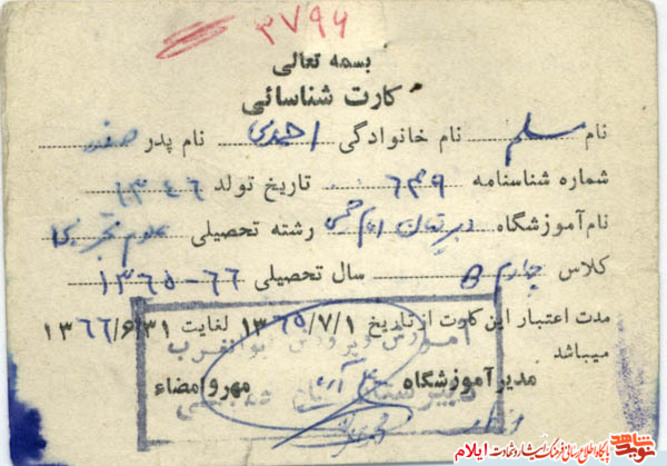 ۳۷۹۶
بسمه تعالی
کارت شناسائی
نام مسلم نام خانوادگی احمدی نام پدر صفر
شماره شناسنامه ۶۴۹ تاریخ تولد ۱۳۴۶
نام آموزشگاه دبیرستان امام خمینی رشته تحصیلی علوم تجربی
کلاس چهارم B سال تحصیلی ۶۶-۱۳۶۵
مدت اعتبار این کارت از تاریخ ۱۳۶۵/۷/۱ لغایت ۱۳۶۶/۶/۳۱
میباشد
مدیر آموزشگاه مهر و امضاء
نوید شاهد
پایگاه اطلاع رسانی فرهنگ ایثار و شهادت ایلام